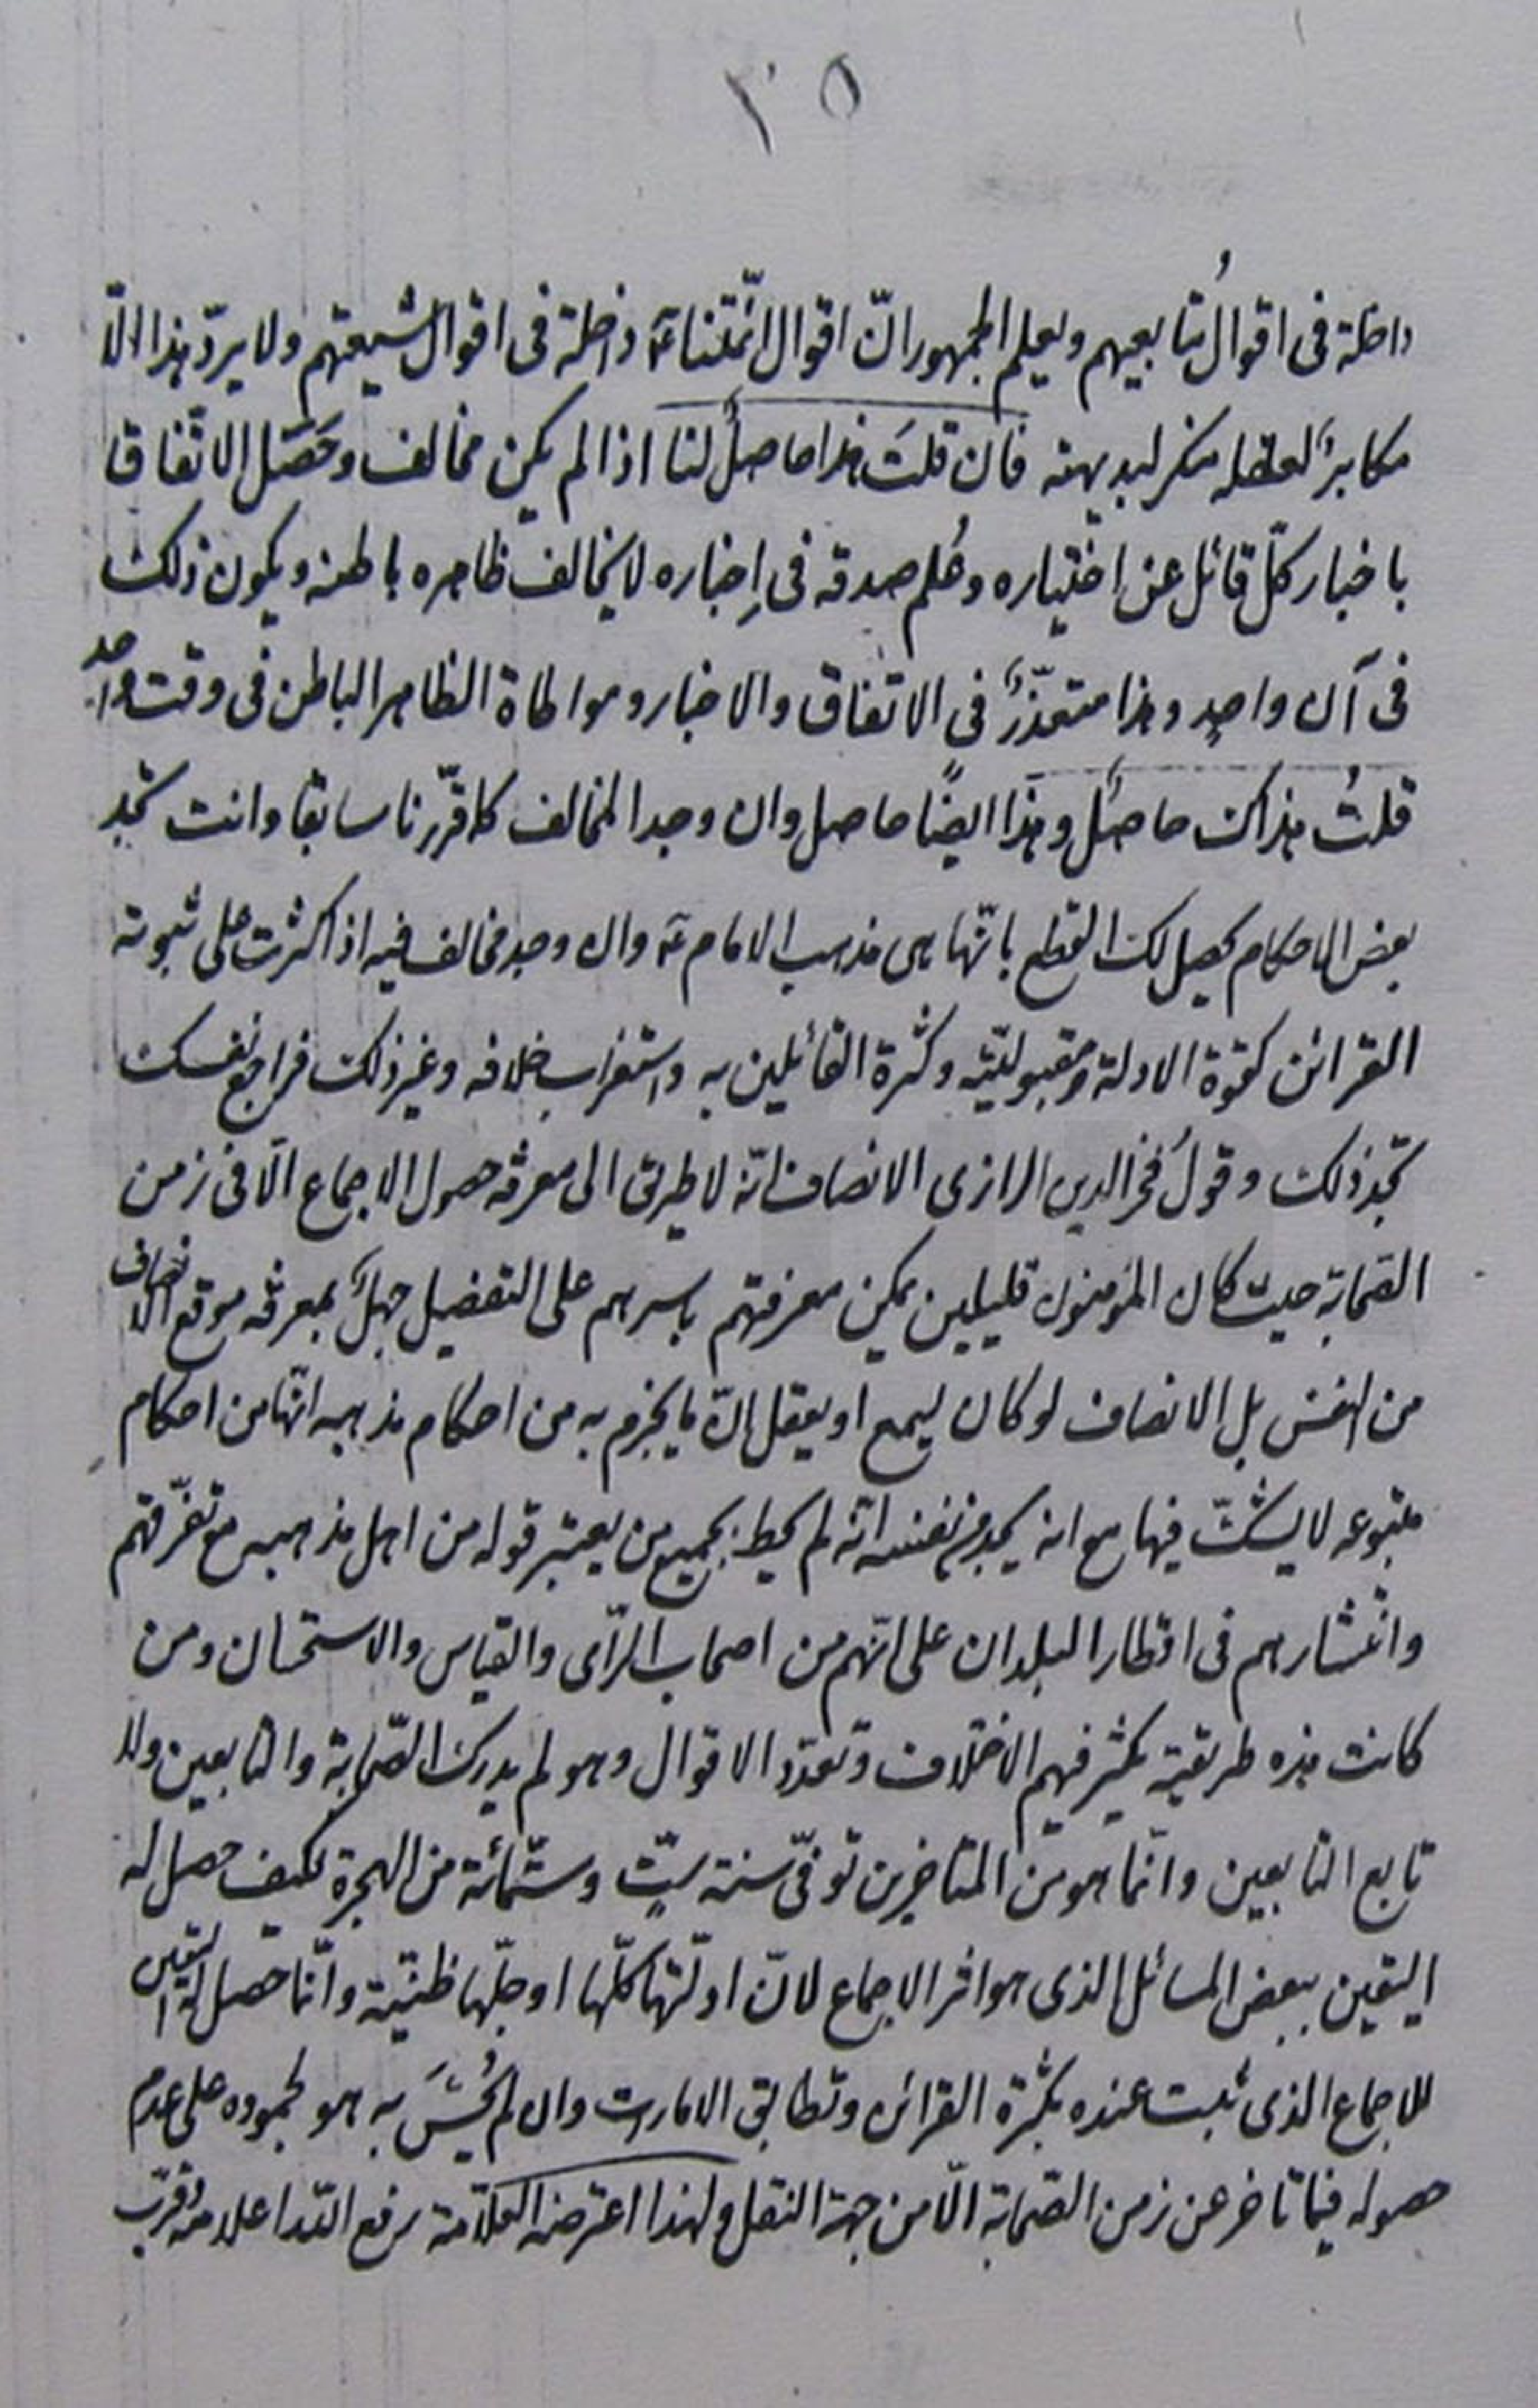 ٣٥
داخلة فى اقوال تابعيهم ويعلم الجمهور انّ اقوال ائمّتنا ع داخلة فى اقوال شيعتهم ولا يردّ هذا الّا
مكابرٌ لعقله منكر لبديهته فان قلتَ هذا حاصلٌ لنا اذا لم يكن مخالف وحَصَل الاتّفاق
باخبار كلّ قائل عن اختياره وعُلم صدقه فى اِخباره لا يخالف ظاهره باطنه ويكون ذلك
فى آن واحدٍ وهذا متعذّرٌ فى الاتفاق والاخبار ومواطاة الظاهر الباطن فى وقت واحد
قلتُ هذاك حاصلٌ وهذا ايضًا حاصل وان وجد المخالف كما قرّرنا سابقا وانت تجد
بعض الاحكام يحصل لك القطع بانّها هى مذهب الامام ع وان وجد مخالف فيه اذا كثرت على ثبوته
القرائن كقوة الادلة ومقبوليّته وكثرة القائلين به واستغراب خلافه وغير ذلك فراجع نفسك
تجد ذلك وقولُ فخر الدين الرازى الانصاف انّه لا طريق الى معرفة حصول الاجماع الّا فى زمن
الصّحابة حيث كان المؤمنون قليلين يمكن معرفتهم باسرهم على التفصيل جهلٌ بمعرفة موقع الانصاف
من النفس بل الانصاف لو كان يسمع او يعقل انّ ما يجزم به من احكام مذهبه انّها من احكام
متبوعه لا يشكّ فيها مع انه يجد من نفسه انّه لم يحط بجميع من يعتبر قوله من اهل مذهبه مع تفرّقهم
وانتشارهم فى اقطار البلدان على انّهم من اصحاب الرّأى والقياس والاستحسان ومن
كانت هذه طريقته يكثر فيهم الاختلاف وتعدّد الاقوال وهو لم يدرك الصّحابة والتابعين ولا
تابع التابعين وانّما هو من المتاخرين توفّى سنة ستٍّ وستّمائة من الهجرة فكيف حصل له
اليقين ببعض المسائل الذى هو اثر الاجماع لانّ ادلّتها كلّها او جلّها ظنّيّة وانّما حصل له اليقين
للاجماع الذى ثبت عنده بكثرة القرائن وتطابق الامارت وان لم يُحِسَّ به هو لجموده على عدم
حصوله فيما تاخر عن زمن الصّحابة الّا من جهة النقل ولهذا اعترضه العلّامة رفع اللّه اعلامه وقرّب